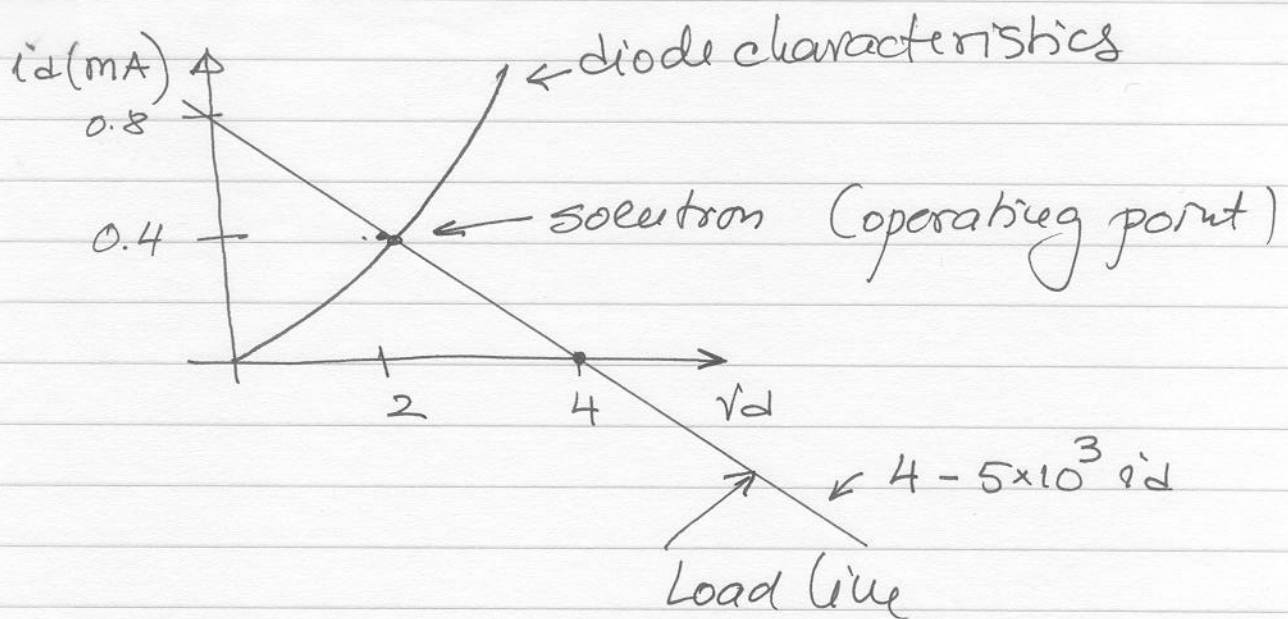 id(mA)
diode characteristics
0.8
0.4
solution (operating point)
2
4
Vd
4 - 5×10³ id
Load line